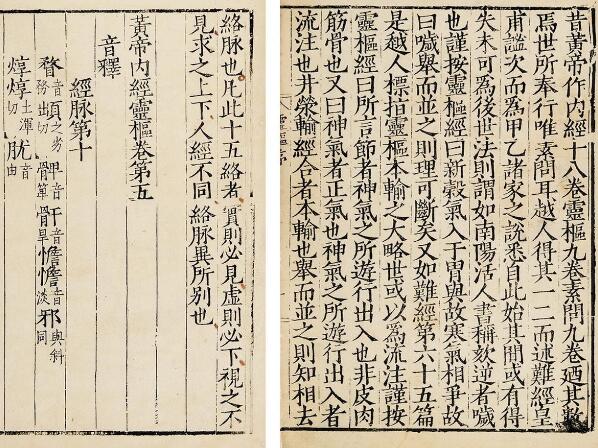 昔黃帝作內經十八卷靈樞九卷素問九卷廼其數
焉世所奉行唯素問耳越人得其一二而述難經皇
甫謐次而為甲乙諸家之說悉自此始其間或有得
失未可為後世法則謂如南陽活人書稱欬逆者噦
也謹按靈樞經曰新穀氣入于胃與故寒氣相爭故
曰噦舉而並之則理可斷矣又如難經第六十五篇
是越人標指靈樞本輸之大略世或以為流注謹按
靈樞經曰所言節者神氣之所遊行出入也非皮肉
筋骨也又曰神氣者正氣也神氣之所遊行出入者
流注也井滎輸經合者本輸也舉而並之則知相去
絡脉也凡此十五絡者實則必見虛則必下視之不
見求之上下人經不同絡脉異所別也
黃帝內經靈樞卷第五
音釋
經脉第十
瞀音務 之劣切 音 骭音旱 憺憺音淡 邪與斜同
焞焞土渾切 肬音由